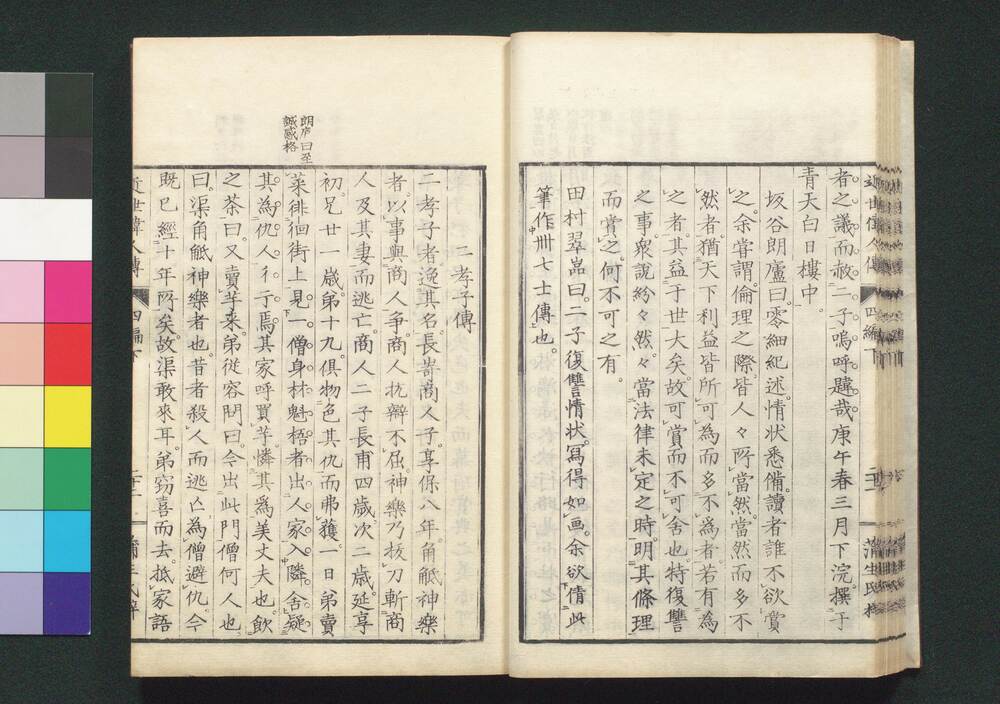 者之議而赦二子嗚呼韙哉庚午春三月下浣撰于
青天白日樓中
坂谷朗廬曰零細紀述情状悉備讀者誰不欲賞
之余嘗謂倫理之際皆人々所當然當然而多不
然者猶天下利益皆所可為而多不為者若有為
之者其益于世大矣故可賞而不可舍也特復讐
之事衆說紛々然々當法律未定之時明其條理
而賞之何不可之有
田村翠嵓曰二子復讐情状寫得如画余欲倩此
筆作卌七士傳也
近世偉人傳
四編下
蒲生氏梓
二孝子傳
二孝子者逸其名長嵜商人子享保八年角觝神樂
者以事與商人爭商人抗辯不屈神樂乃拔刀斬商
人及其妻而逃亡商人二子長甫四歲次二歲延享
初兄廿一歲弟十九俱物色其仇而弗獲一日弟賣
菜徘徊街上見一僧身材魁梧者出人家入隣舍疑
其為仇人彳亍焉其家呼買芋憐其為美丈夫也飲
之茶曰又賣芋来弟從容問曰今出此門僧何人也
曰渠角觝神樂者也昔者殺人而逃亡為僧避仇今
既已經十年所矣故渠敢來耳弟窃喜而去抵家語
朗庐曰至
誠感格
近世偉人傳
四編下